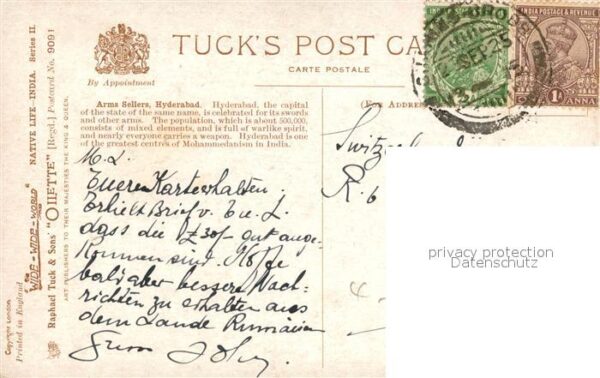 TUCK'S POST CA
CARTE POSTALE
By Appointment
FOR ADDRE
INDIA POSTAGE & REVENUE
1A
ANNA
Arms Sellers, Hyderabad. Hyderabad, the capital
of the state of the same name, is celebrated for its swords
and other arms. The population, which is about 500,000,
consists of mixed elements, and is full of warlike spirit,
and nearly everyone carries a weapon. Hyderabad is one
of the greatest centres of Mohammedanism in India.
M. L.
Eueren Karte erhalten.
Erhielt Brief v. Eu. L.
dass die £30/- gut ange-
kommen sind. Hoffe
bald aber bessere Nach-
richten zu erhalten aus
dem Lande Rumänien
R. 6
privacy protection
Datenschutz
Copyright London
Printed in England
"WIDE-WIDE-WORLD"
NATIVE LIFE—INDIA. Series II.
Raphael Tuck & Sons' "OILETTE" [Regd.] Postcard No. 9091
ART PUBLISHERS TO THEIR MAJESTIES THE KING & QUEEN.